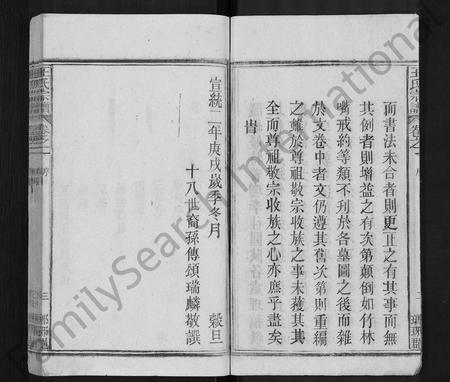 而書法未合者則更正之有其事而無
其例者則增益之有次第顛倒如竹林
嘴戒約等類不刋於各墓圖之後而雜
於文卷中者文仍遵其舊次第則重編
之雖於尊祖敬宗收族之事未獲其其
全而尊祖敬宗收族之心亦庶乎盡矣
旹
宣統二年庚戌歲季冬月 穀旦
十八世裔孫傳頌瑞麟敬譔
王氏宗譜 卷之一 序 三
FamilySearch International